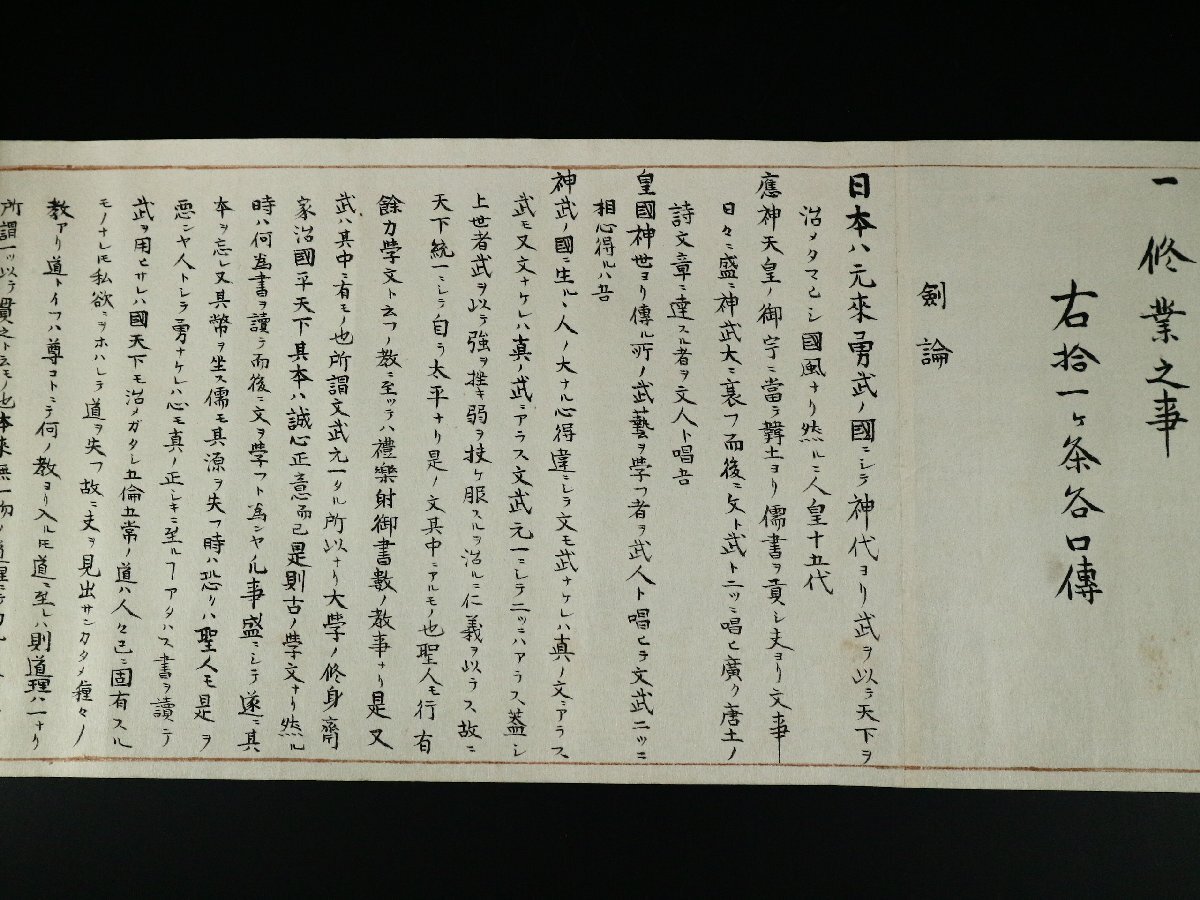 一 修業之事
右拾一ヶ条各口傳
劍論
日本ハ元來勇武ノ國ニシテ神代ヨリ武ヲ以テ天下ヲ
治メタマヒシ國風ナリ然ルニ人皇十五代
應神天皇ノ御宇ニ當テ韓土ヨリ儒書ヲ貢シ夫ヨリ文事
日々ニ盛ニ神武大ニ衰フ而後ニ文ト武トニツニ唱ヒ廣ク唐土ノ
詩文章ニ達スル者ヲ文人ト唱吾
皇國神世ヨリ傳ル所ノ武藝ヲ學フ者ヲ武人ト唱ヒテ文武ニツニ
相心得ルハ吾
神武ノ國ニ生ルヽ人ノ大ナル心得違ニシテ文モ武ナケレハ真ノ文ニアラス
武モ又文ナケレハ真ノ武ニアラス文武元一ニシテニツニハアラス蓋シ
上世者武ヲ以テ強ヲ挫キ弱ヲ扶ケ服スルヲ治ルニ仁義ヲ以テス故ニ
天下統一ニシテ自ラ太平ナリ是ノ文其中ニアルモノ也聖人モ行有
餘力學文ト云フノ教ニ至ツテハ禮樂射御書數ノ教事ナリ是又
武ハ其中ニ有モノ也所謂文武元一タル所以ナリ大學ノ修身齊
家治國平天下其本ハ誠心正意而已是則古ノ學文ナリ然ル
時ハ何為書ヲ讀テ而後ニ文ヲ學フト為ンヤ凡事盛ニシテ遂ニ其
本ヲ忘レ又其幣ヲ坐ス儒モ其源ヲ失フ時ハ恐クハ聖人モ是ヲ
悪ンヤ人トシテ勇ナケレハ心モ真ノ正シキニ至ルヿアタハス書ヲ讀テ
武ヲ用ヒサレハ國天下モ治メガタシ五倫五常ノ道ハ人々己ニ固有スル
モノナレ𪜈私欲ニヲホハレテ道ヲ失フ故ニ夫ヲ見出サンカタメ種々ノ
教アリ道トイフハ尊コトニテ何ノ教ヨリ入ル𪜈道ニ至レハ則道理ハ一ナリ
所謂一ツ以テ貫之ト云モノ也本来無一物ノ道理ニテ